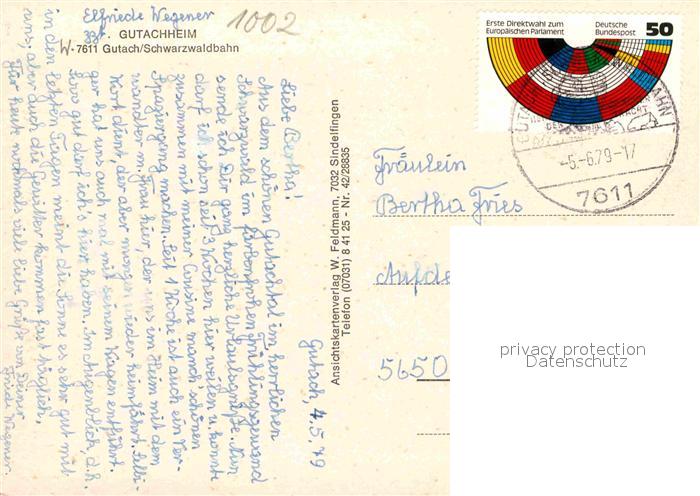 Elfriede Wegener
zzt. GUTACHHEIM
W-7611 Gutach/Schwarzwaldbahn
1002
Gutach, 4.5.79
Liebe Bertha!
Aus dem schönen Gutachtal im herrlichen
Schwarzwald im farbenfrohen Frühlingsgewand
sende ich Dir ganz herzliche Urlaubsgrüße. Nun
darf ich schon seit 3 Wochen hier weilen u. konnte
zusammen mit meiner Cousine manch' schönen
Spaziergang machen. Seit 1 Woche ist auch ein Ver-
wandter m. Frau hier, der uns im Heim mit dem
Wort dient, der aber morgen wieder heimfährt. Selbi-
ger hat uns auch mal mit seinem Wagen entführt.
So gut darf ich's hier haben. Im Augenblick, d.h.
in den letzten Tagen meint die Sonne es sehr gut mit
uns, aber auch die Gewitter kommen fast täglich.
Für heute nochmals viele liebe Grüße von Deiner
Friede Wegener.
Ansichtskartenverlag W. Feldmann, 7032 Sindelfingen
Telefon (07031) 8 41 25 - Nr. 42/28835
Erste Direktwahl zum
Europäischen Parlament
Deutsche
Bundespost
50
-5.-6.79-17
7611
Fräulein
Bertha Fries
Aufde
5650
privacy protection
Datenschutz